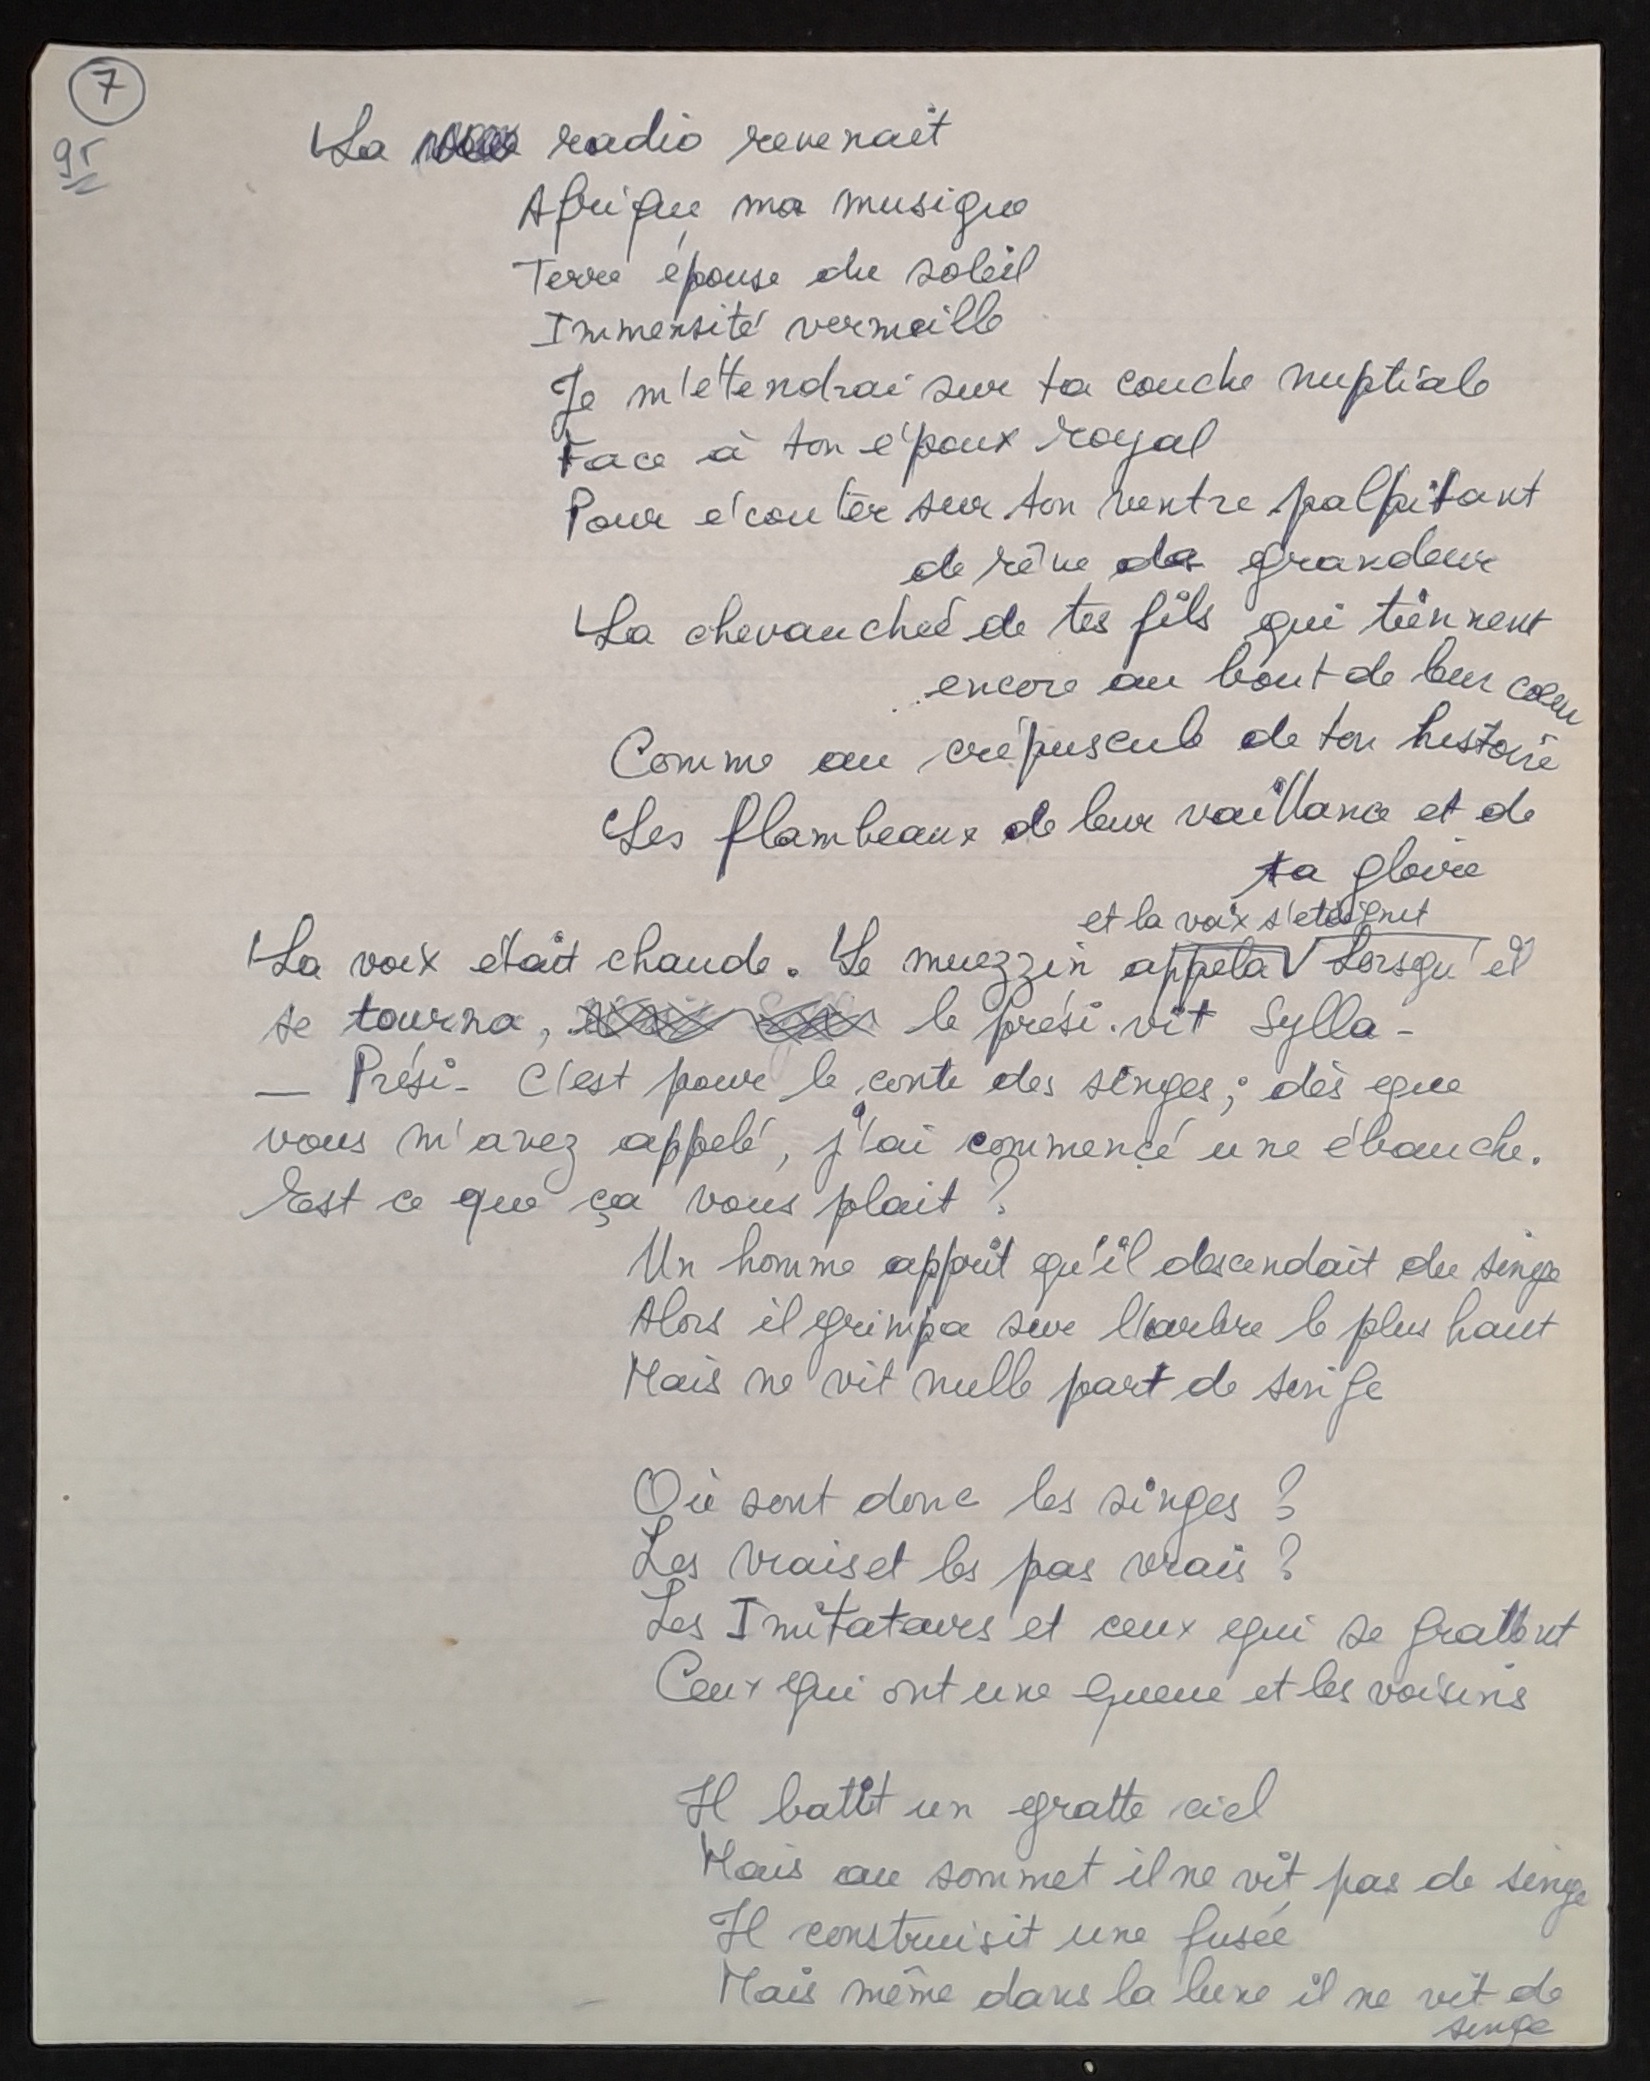 7
95
La radio revenait
Afrique ma musique
Terre épouse du soleil
Immensité vermeille
Je m'étendrai sur ta couche nuptiale
Face à ton époux royal
Pour écouter sur ton ventre palpitant
de rêve de grandeur
La chevauchée de tes fils qui tiennent
encore au bout de leur coeur
Comme au crépuscule de ton histoire
Les flambeaux de leur vaillance et de
ta gloire
et la voix s'éteignit
La voix était chaude. Le muezzin appela Lorsqu'il
se tourna, le prési. vit Sylla -
— Prési - C'est pour le conte des singes; dès que
vous m'avez appelé, j'ai commencé une ébauche.
Est ce que ça vous plait ?
Un homme apprit qu'il descendait du singe
Alors il grimpa sur l'arbre le plus haut
Mais ne vit nulle part de singe
Où sont donc les singes ?
Les vrais et les pas vrais ?
Les Imitateurs et ceux qui se grattent
Ceux qui ont une queue et les voisins
Il batit un gratte ciel
Mais au sommet il ne vit pas de singe
Il construisit une fusée
Mais même dans la lune il ne vit de
singe